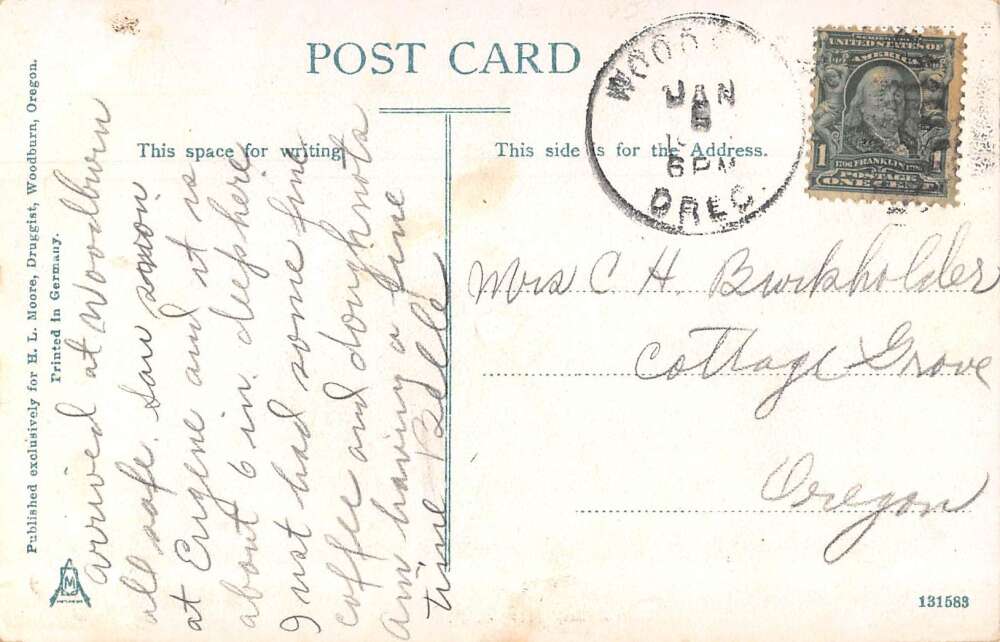 POST CARD
This space for writing
This side is for the Address.
Published exclusively for H. L. Moore, Druggist, Woodburn, Oregon.
Printed in Germany.
arrived at Woodburn
all safe. Saw snow
at Eugene and it is
about 6 in. deep here
I just had some fine
coffee and doughnots
am having a fine
time Belle
WOOD
JAN
5
6PM
OREG.
UNITED STATES OF
AMERICA
1 1706 FRANKLIN 1790 1
POSTAGE
ONE CENT
Mrs C H. Burkholder
Cottage Grove
Oregon
M
131583